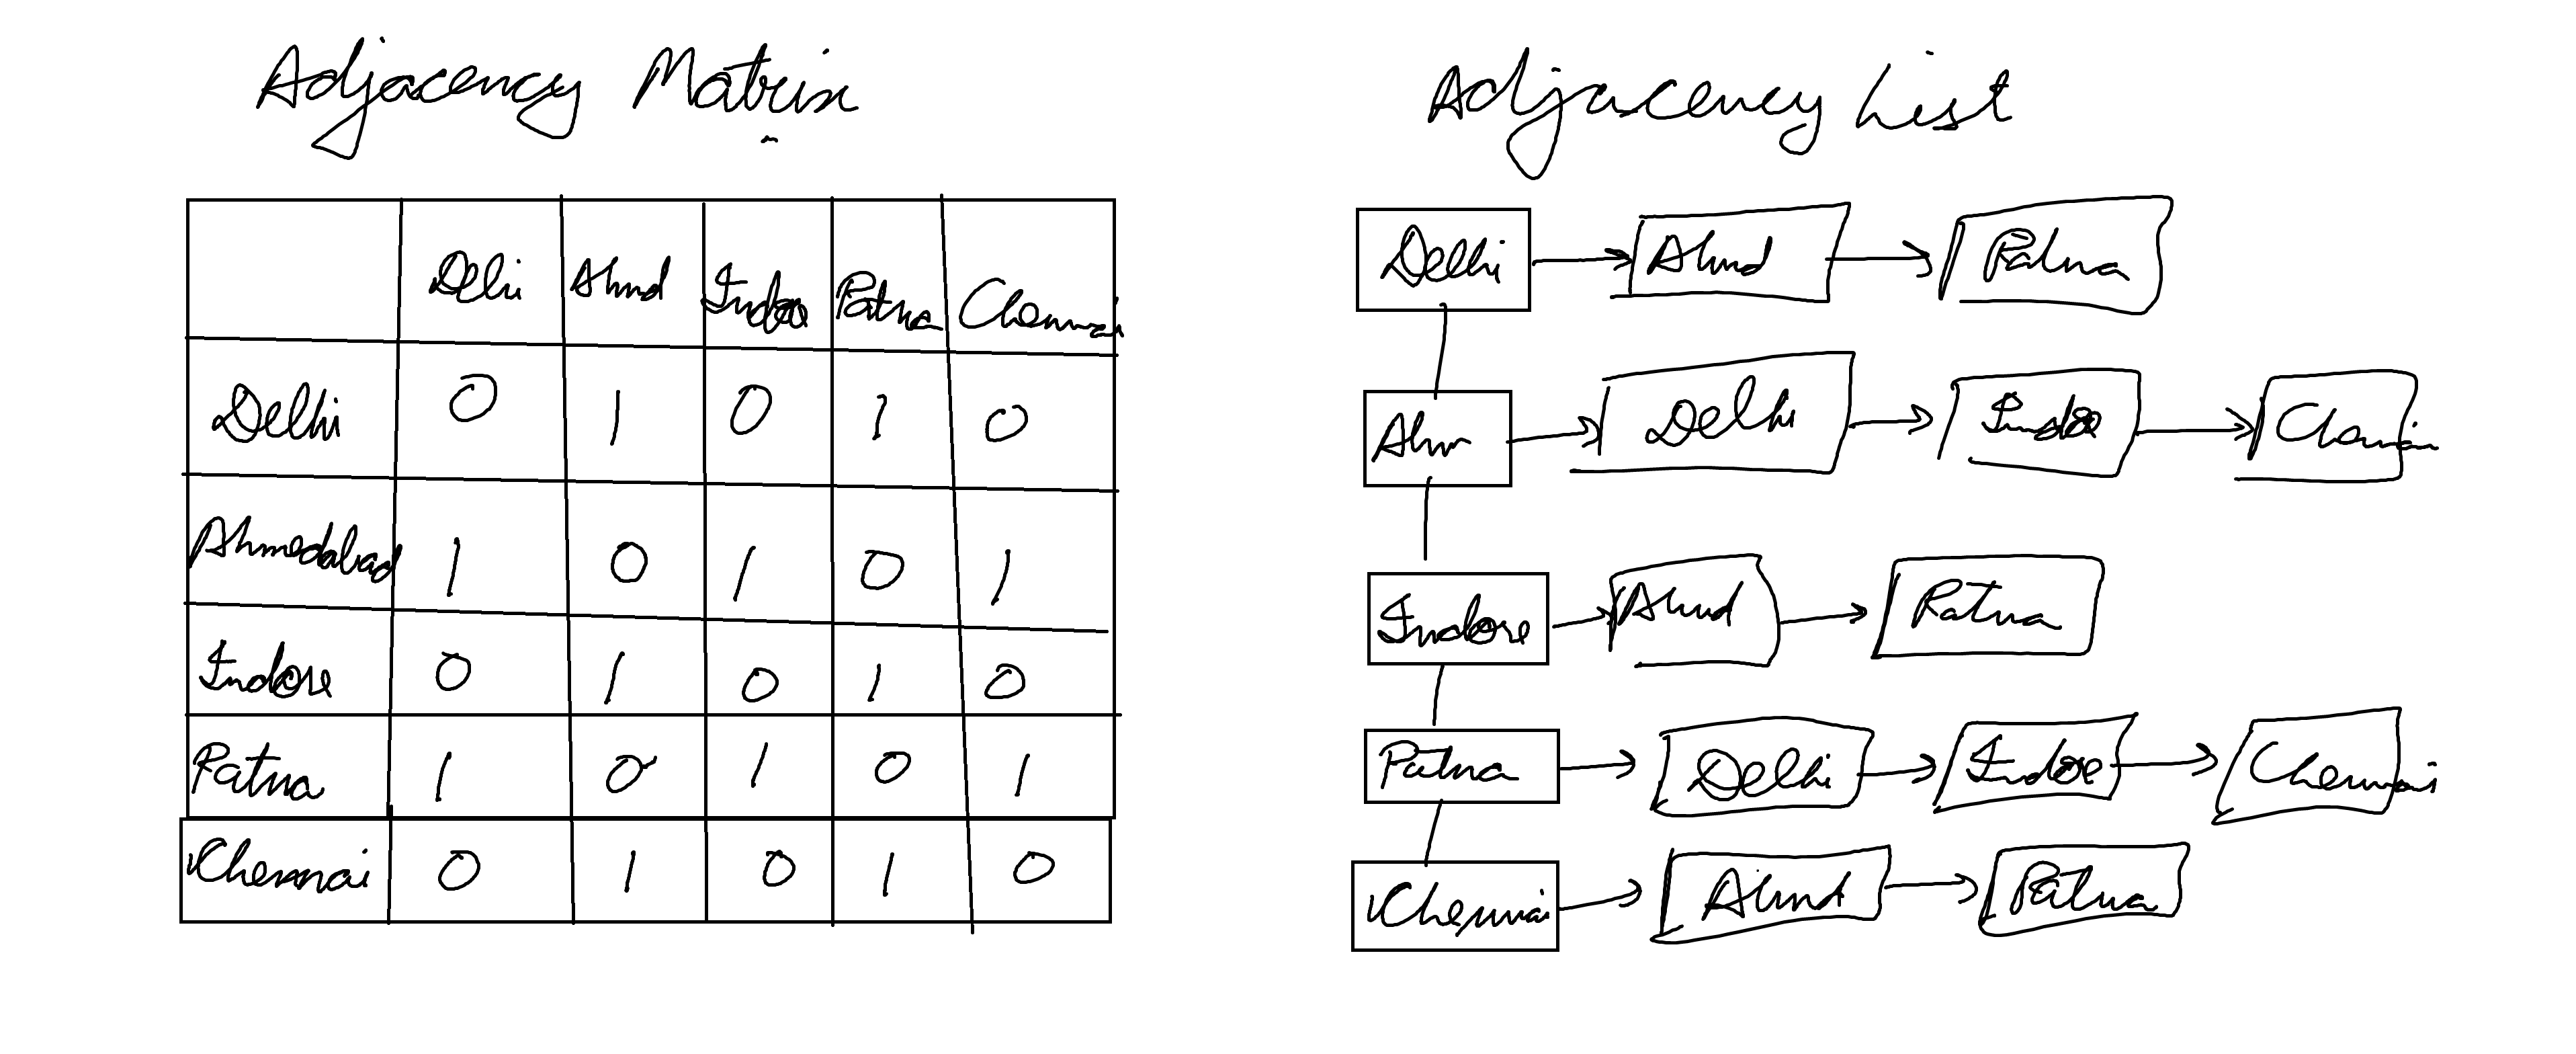 Adjacency Matrix
Delhi Ahmd Indore Patna Chennai
Delhi 0 1 0 1 0
Ahmedabad 1 0 1 0 1
Indore 0 1 0 1 0
Patna 1 0 1 0 1
Chennai 0 1 0 1 0
Adjacency List
Delhi Ahmd Patna
Ahm Delhi Indore Chennai
Indore Ahmd Patna
Patna Delhi Indore Chennai
Chennai Ahmd Patna